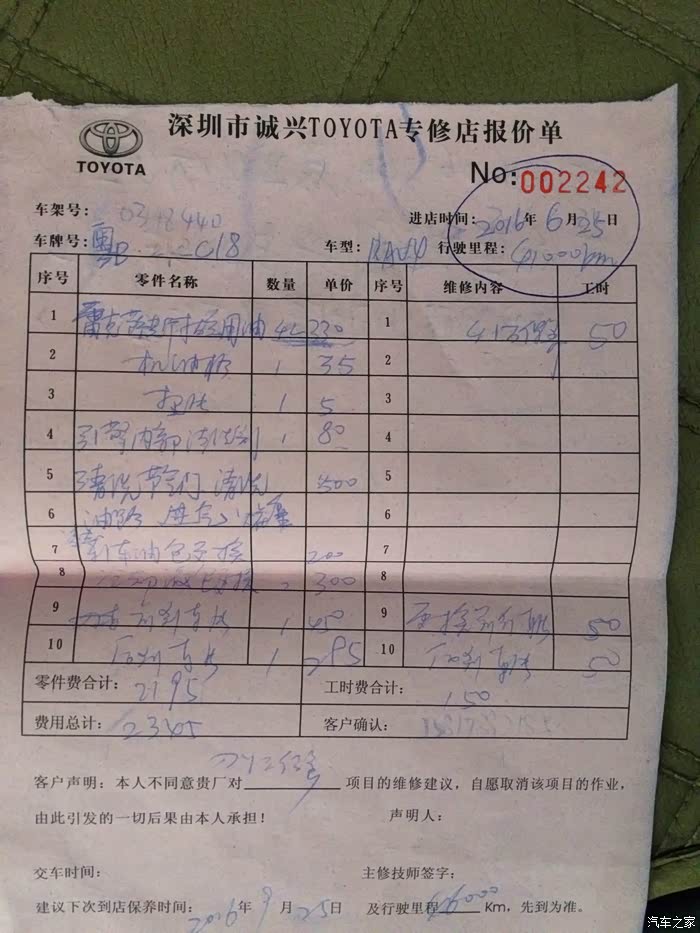 深圳市诚兴TOYOTA专修店报价单
TOYOTA
No:002242
车架号:
进店时间: 2016年 6月25日
车牌号: 粤B C18 车型: RAV4 行驶里程: 41000km
序号 零件名称 数量 单价 序号 维修内容 工时
1 用油 4L 230 1 50
2 机油格 1 35 2
3 1 5 3
4 引擎内部清洗剂 1 80 4
5 清洗节气门 清洗 500 5
6 油路 进气
7 刹车油包更换 200 7
8 300 8
9 前刹车 1 450 9 更换前刹车 50
10 后刹车 1 295 10 后刹车 50
零件费合计: 2195 工时费合计: 150
费用总计: 2345 客户确认:
客户声明:本人不同意贵厂对 项目的维修建议,自愿取消该项目的作业,
由此引发的一切后果由本人承担! 声明人:
交车时间: 主修技师签字:
建议下次到店保养时间: 2016年 9月 25日 及行驶里程 46000 Km,先到为准。
汽车之家